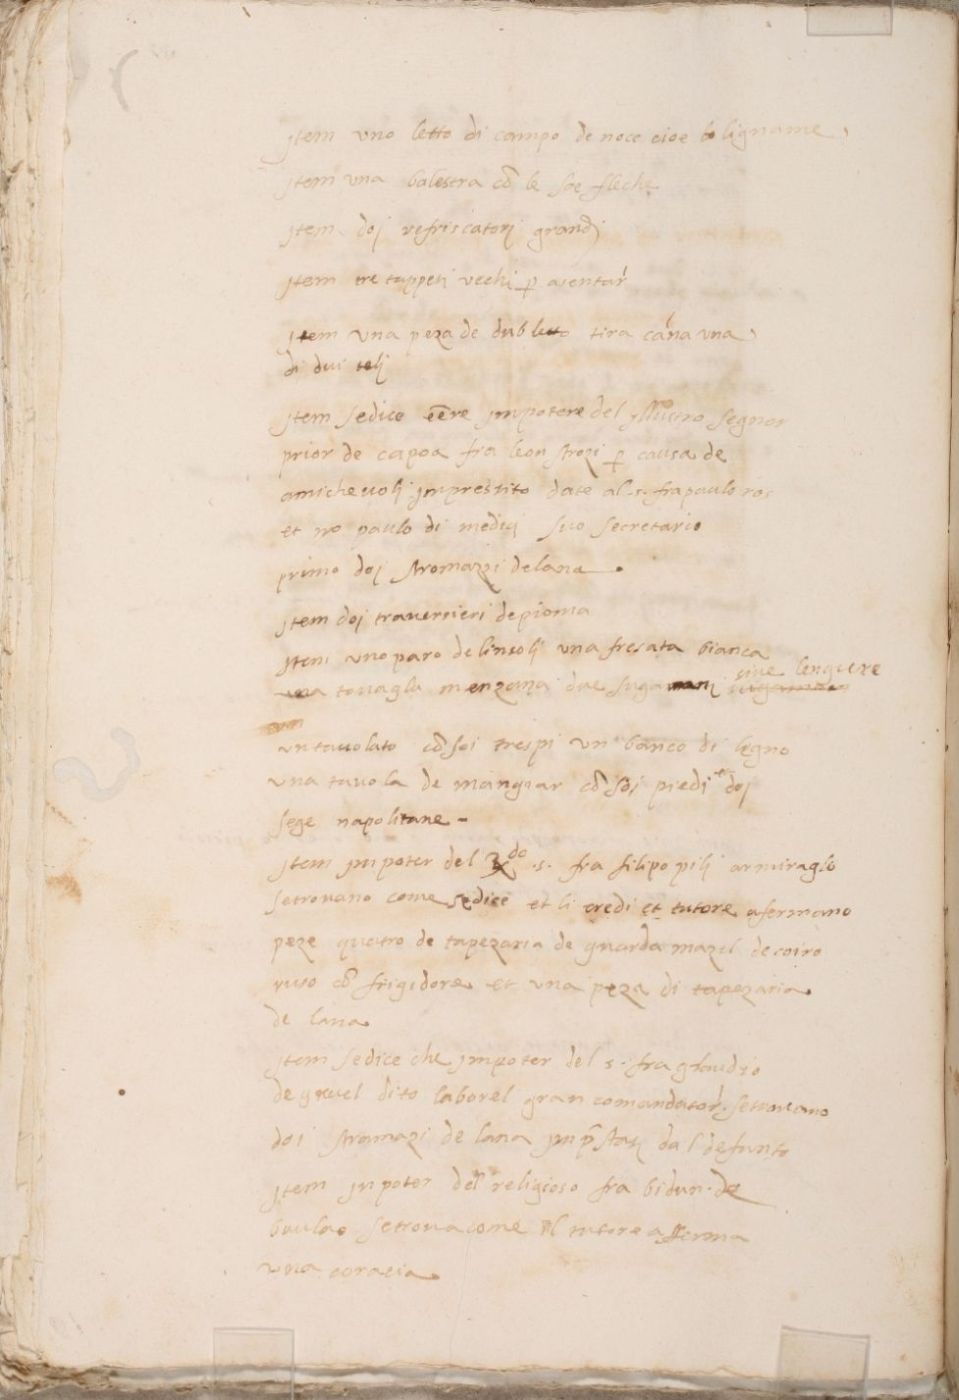 jtem uno letto di campo de noce cioe lo ligname
jtem una balestra cō le soe fleche
jtem doj refriscatorj grandj
jtem tre tappeti vechi p asentar
jtem una peza de dubletto tira cāna una
di dui telj
jtem sedice eēre jmpotere del yllustro segnor
prior de capoa fra leon strozi p causa de
amicheuolj jmprestito date al .s. fra paulo ros
et no paulo di medicj suo secretario
primo doj stromazzi de lana
jtem doj trauersieri de pioma
jtem uno paro de linsolj una fresata bianca
una touagla menzana due sugamanj siue lenguere
un tauolato cō soi trespi un banco di legno
una tauola de mangiar cō soi piedi et doj
sege napolitane
jtem jmpoter del Rdo .s. fra filipo pilj armiraglo
se trouano come sedice et li eredi et tutore afermano
peze quatro de tapezaria de guardamazil de coiro
ruso cō frigidore et una peza di tapezaria
de lana
jtem sedice che jmpoter del s. fra glaudio
de gruel dito laborel gran comandator se trouano
doi stramazi de lana jmpstatj dal defunto
jtem jnpoter del religioso fra bidun de
baulac se troua come il tutore afferma
una coracia